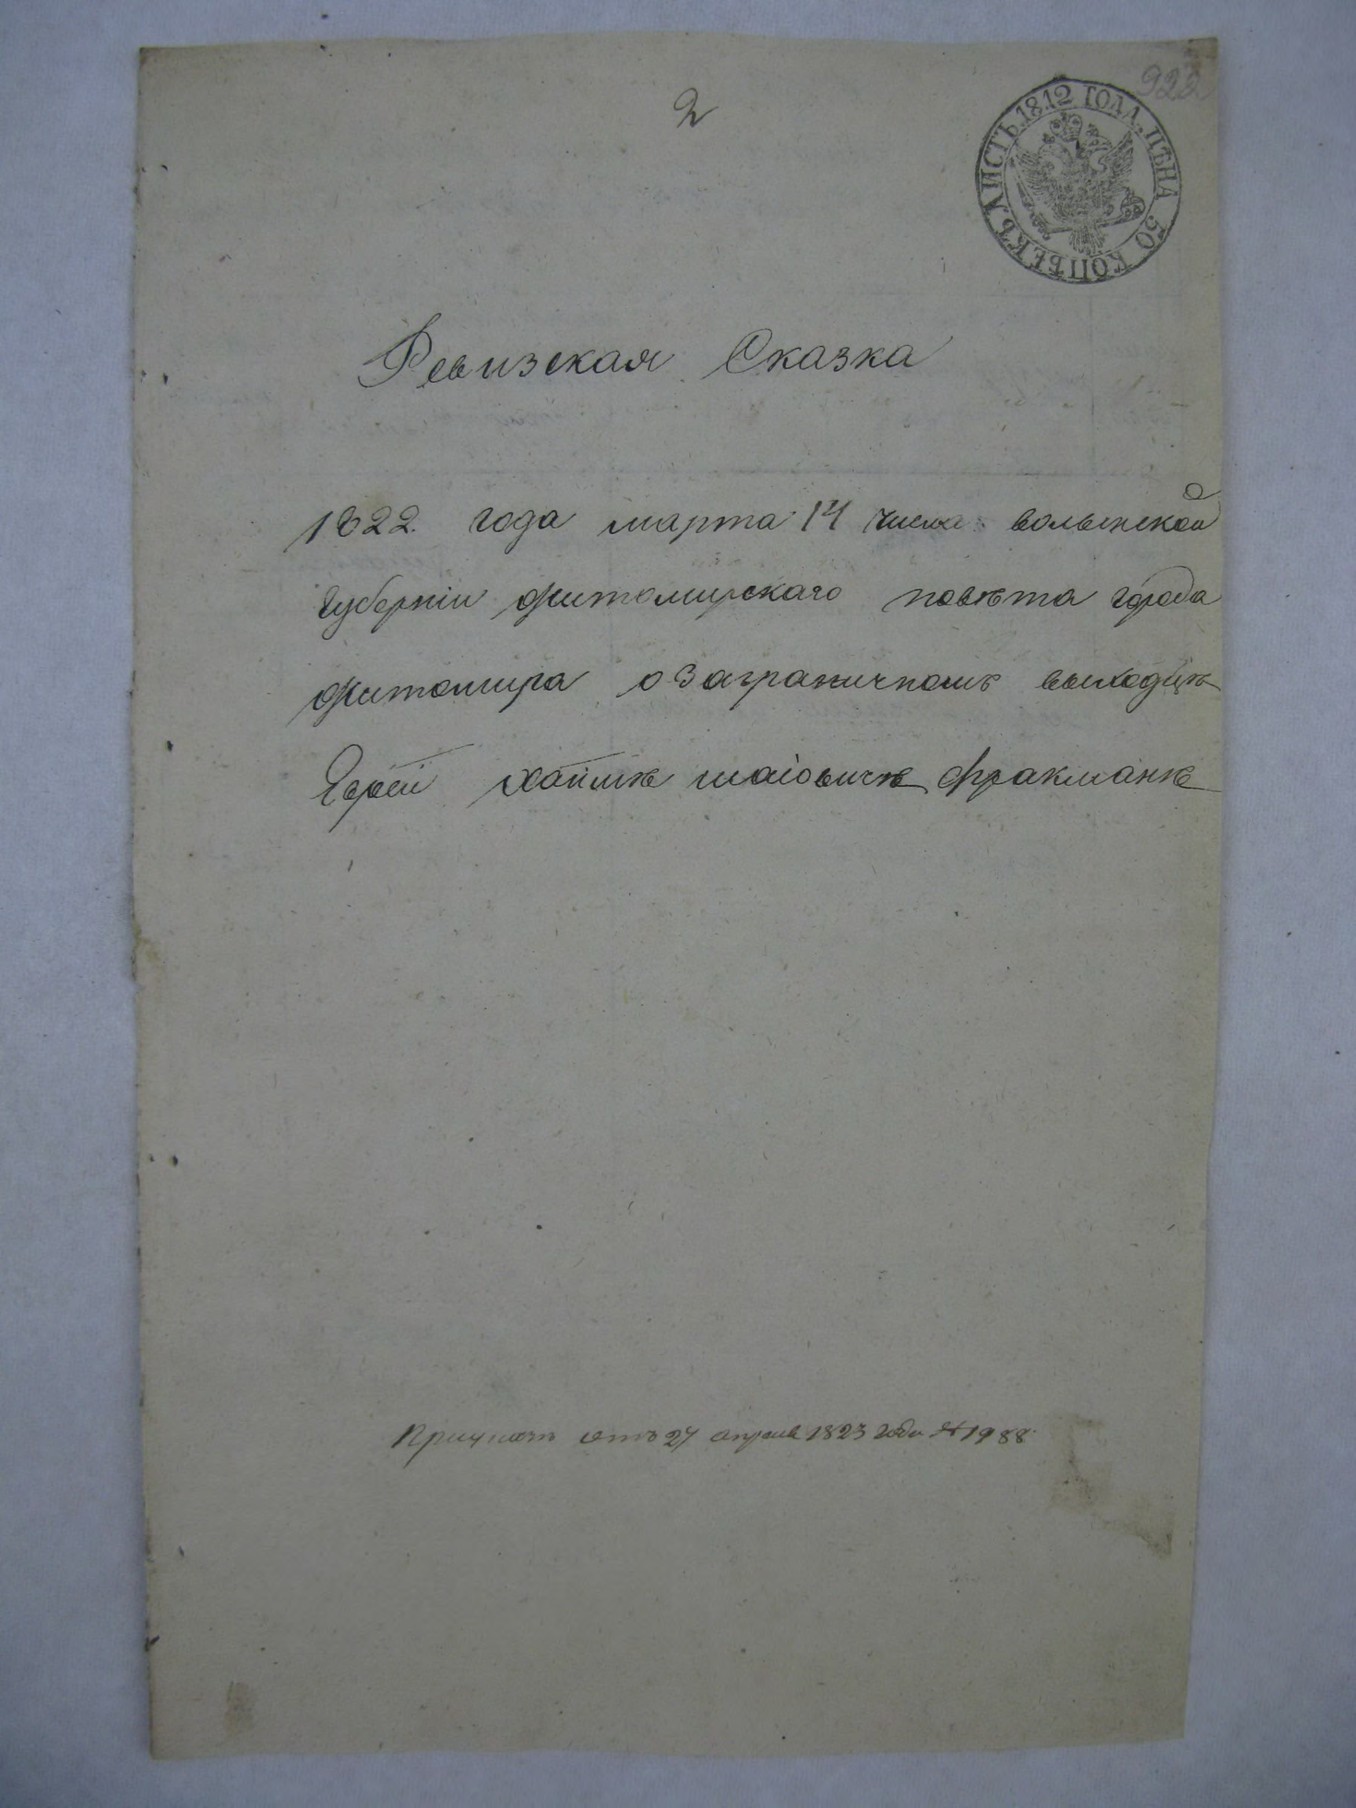 922
2
ЛИСТЪ 1812 ГОДА. ЦѢНА 50 КОПѢЕКЪ.
Ревизская Сказка
1822 года марта 14 числа волынской
Губерніи житомирскаго повѣта города
житомира о заграничномъ выходцѣ
Еврей хаимѣ шаіовичѣ фракманѣ
отъ 27 апреля 1823 года № 1988